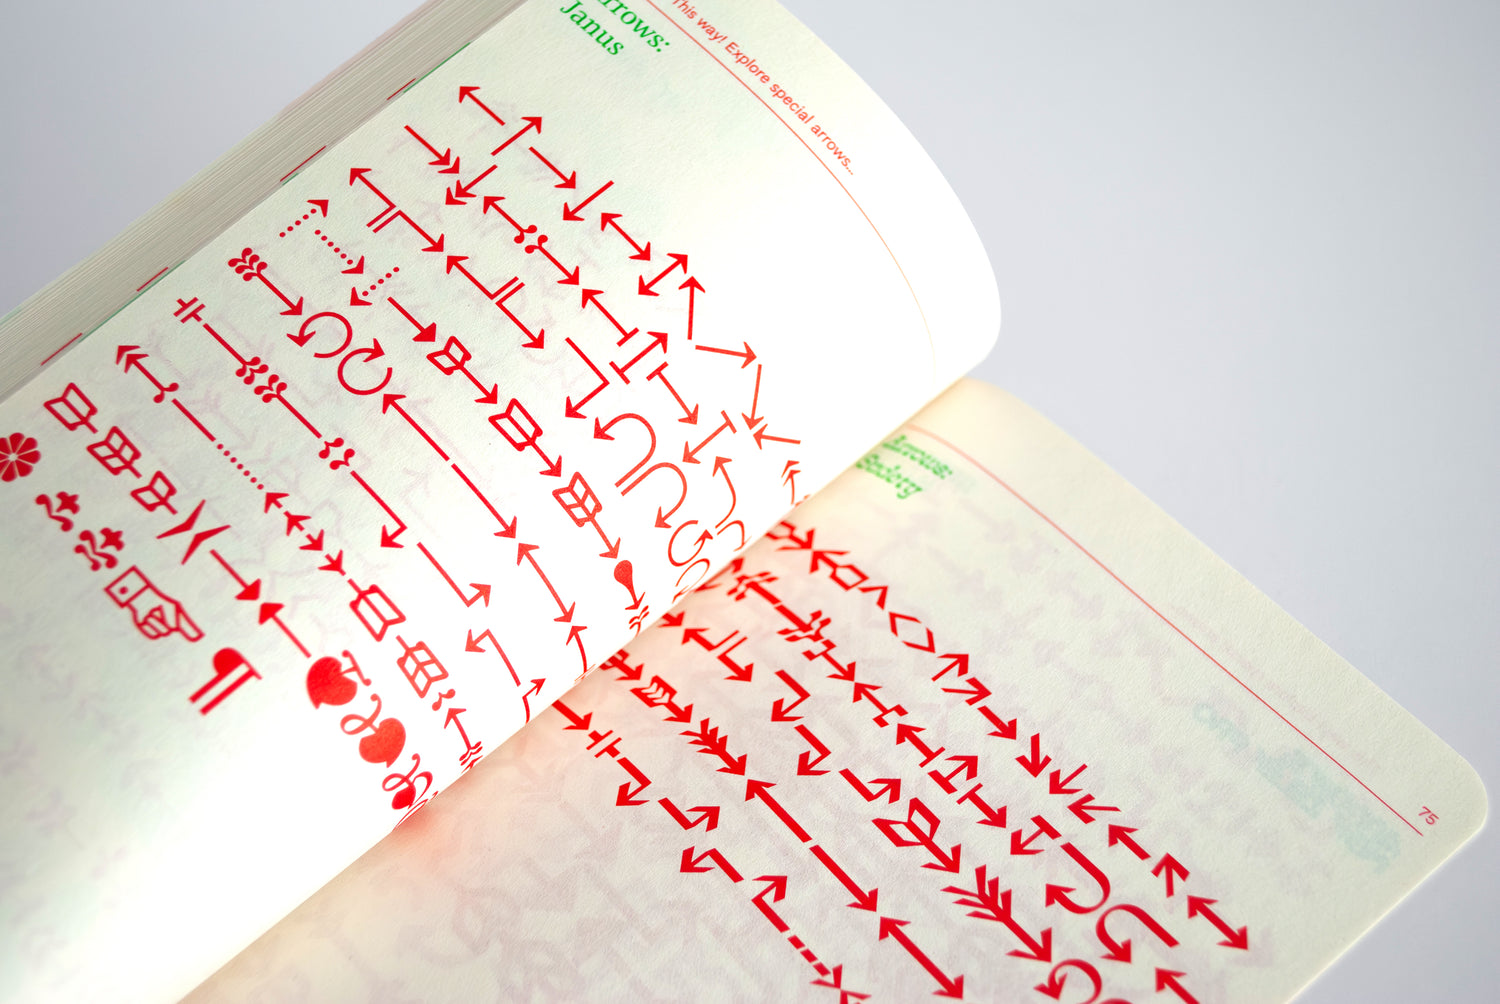 This way! Explore special arrows...
rrows:
Janus
¶
Arrows:
75